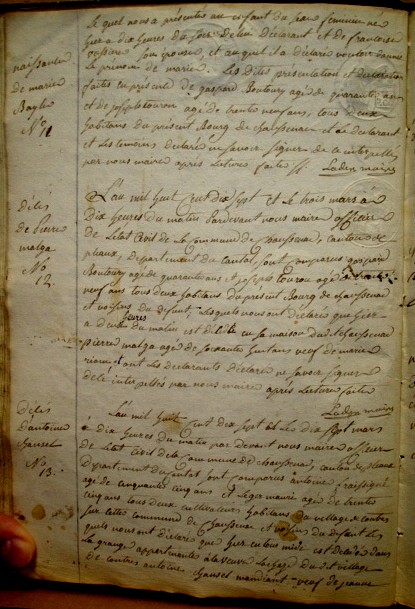 Lequel nous a présenté un enfant du sexe feminin né
hier a dix heures du soir de lui déclarant et de francoise
son épouse, et auquel il a déclaré vouloir donner
le prénom de marie. Les dites présentation et déclaration
faites en présence de gaspard Boutoury agé de quarante ans
et de joseph touron agé de trente neuf ans, tous deux
habitans du présent Bourg de et le déclarant
et les temoins déclaré ne savoir signer de ce interpellés
par nous maire après Lecture faite
naissance
de marie
No
11
L'an mil huit cent dix sept et le trois mars a
dix heures du matin Pardevant nous maire officier
de L'état Civil de la Commune de canton de
pleaux, Département du Cantal, sont comparus gaspard
Boutoury agé de quarante ans et joseph touron agé de trente
neuf ans tous deux habitans du présent Bourg de
et voisins du défunt, Lesquels nous ont déclaré que hier
a deux heures du matin est décédé en sa maison du dit
pierre malga agé de soixante huit ans veuf de marie
et ont Les déclarants déclaré ne savoir signer
de ce interpellés par nous maire après Lecture faite
décès
de Pierre
malga
No
12.
L'an mil huit cent dix sept et Le dix sept mars
a dix heures du matin par devant nous maire officier
de L'état Civil de la Commune de canton de pleaux
Département du Cantal sont comparus antoine
agé de cinquante cinq ans et Leger agé de trente
cinq ans tous deux cultivateurs habitans du village de
sur cette commune de et voisins du défunt Les
quels nous ont déclaré que hier est décédé dans
La grange appartenante a la veuve du dit village
de antoine chanset mandiant veuf de jeanne
décès
d'antoine
chanset
No
13.